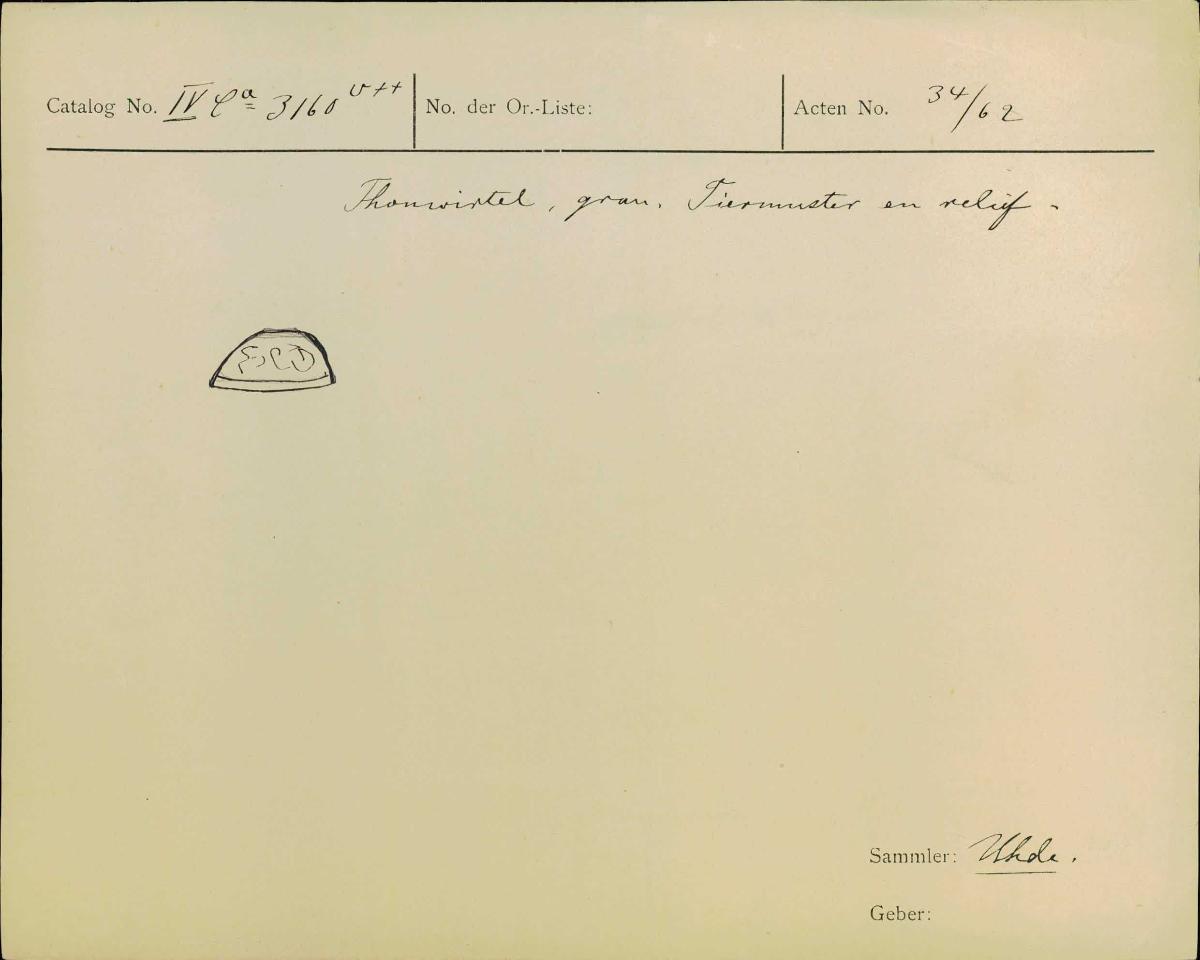 Catalog No. IV Ca 3160 v++ No. der Or.-Liste: Acten No. 34/62
Thonwirtel, grau. Tiermuster en relief -
Sammler: Uhde.
Geber: